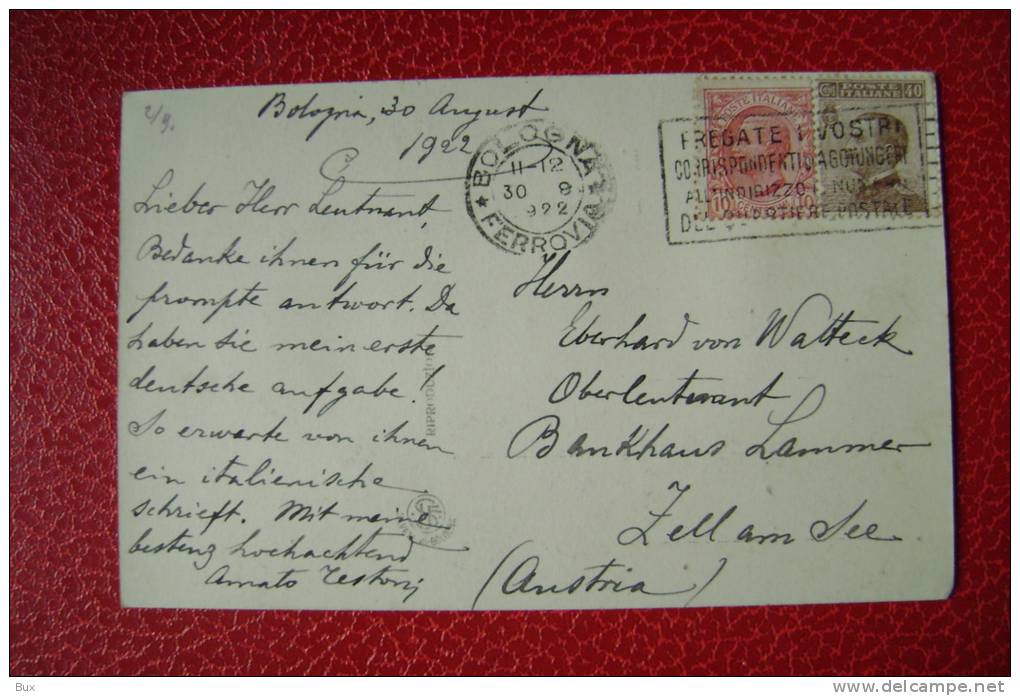 2/9.
Bologna, 30 August
1922
Lieber Herr Leutnant,
Bedanke ihnen für die
prompte antwort. Da
haben sie mein erste
deutsche aufgabe!
So erwarte von ihnen
ein italienische
schrieft. Mit meine
bestenz hochachtend
Amato Testoni
RIPRODUZIO
BOLOGNA
11-12
30 8
922
★ FERROVIA
POSTE ITALIANE
10 10
POSTE
ITALIANE
40
FREGATE I VOSTRI
CORRISPONDENTI D'AGGIUNGERE
ALL'INDIRIZZO NUM
DEL QUARTIERE POSTALE
Herrn
Eberhard von Watteck
Oberleutnant
Bankhaus Lammer
Zell am See
(Austria)
Bux
www.delcampe.net